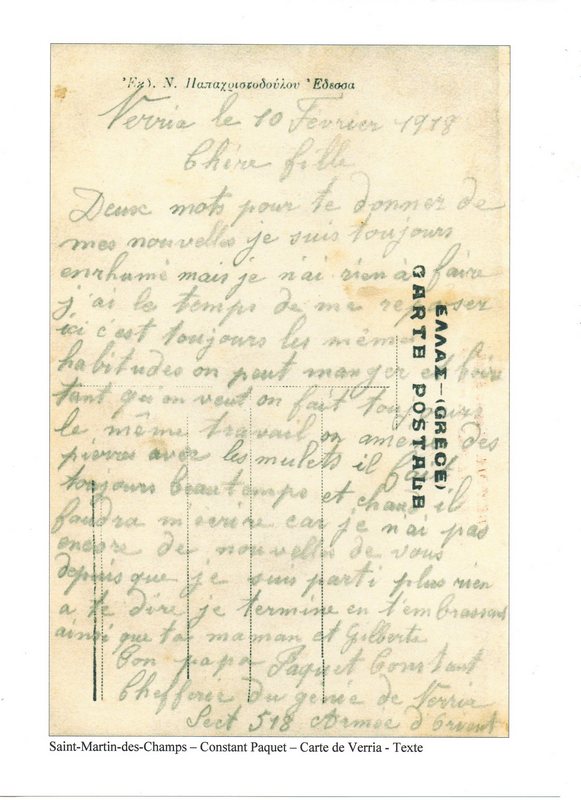 Ἐκδ. Ν. Παπαχριστοδούλου Ἔδεσσα
Verria le 10 Fevrier 1918
Chère fille
Deux mots pour te donner de
mes nouvelles je suis toujours
enrhumé mais je n'ai rien à faire
j'ai le temps de me reposer
ici c'est toujours les même
habitudes on peut manger et boire
tant qu'on veut on fait toujours
le même travail on amene des
pierres avec les mulets il fait
toujours beau temps et chaud il
faudra m'ecrire car je n'ai pas
encore de nouvelles de vous
depuis que je suis parti plus rien
a te dire je termine en t'embrassant
ainsi que ta maman et Gilberte
Ton papa Paquet Constant
Chefferie du genie de Verria
Sect 518 Armee d'Orient
ΕΛΛΑΣ – (GRÈCE)
CARTE POSTALE
Saint-Martin-des-Champs – Constant Paquet – Carte de Verria - Texte